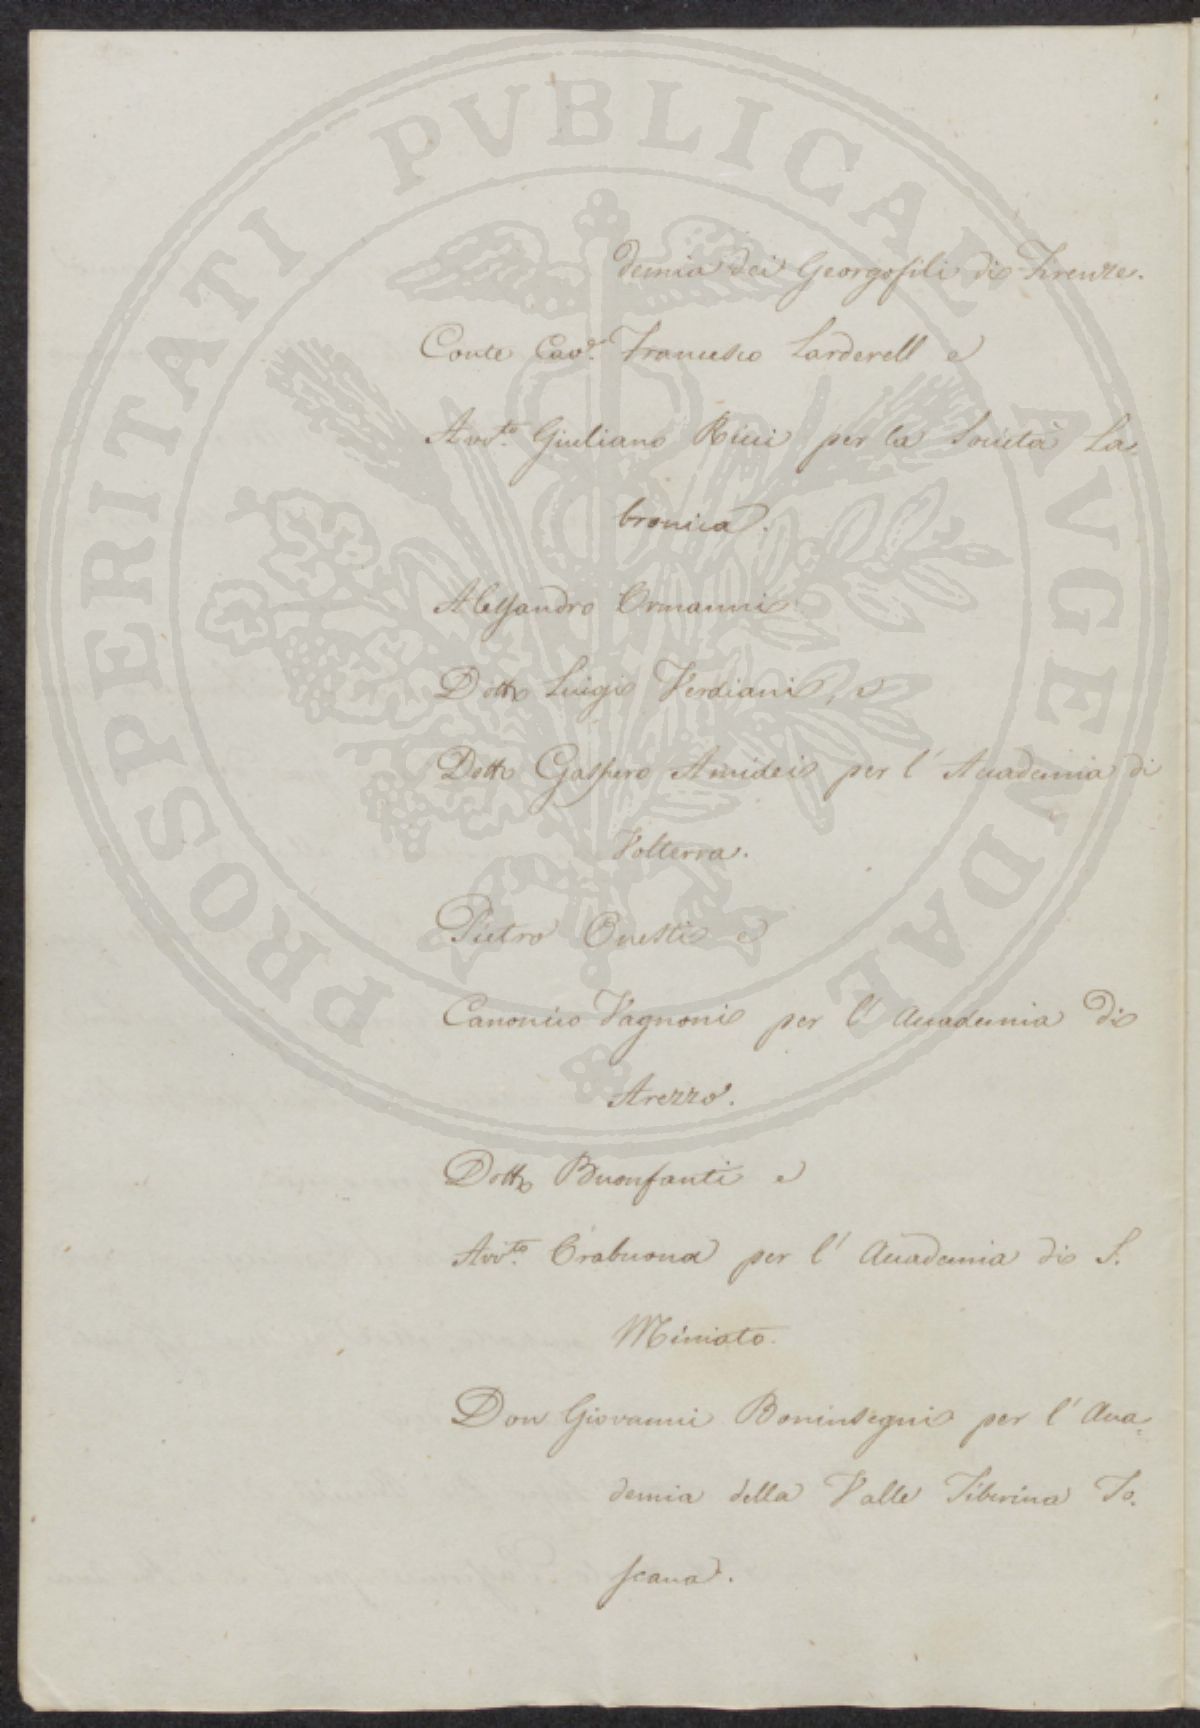 PROSPERITATI PVBLICAE AVGENDAE
demia dei Georgofili di Firenze.
Conte Cav.r Francesco Larderell e
Avv.to Giuliano Ricci per la Società La,
bronica.
Alessandro Ormanni
Dott. Luigi Verdiani, e
Dott. Gaspero Amidei per l'Accademia di
Volterra.
Pietro Onesti e
Canonico Vagnoni per l'Accademia di
Arezzo.
Dott. Buonfanti e
Avv.to Orabuona per l'Accademia di S.
Miniato.
Don Giovanni Boninsegni per l'Acca,
demia della Valle Tiberina To,
scana.